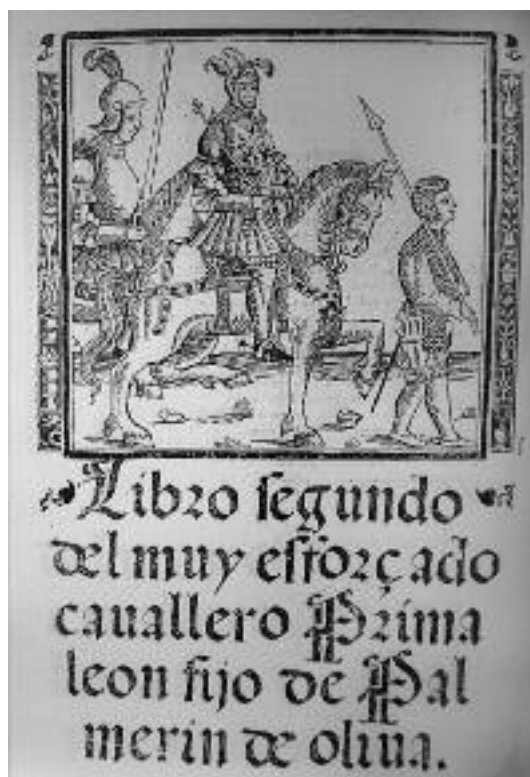 Libro segundo
del muy esforçado
cauallero Prima
leon fijo de Pal
merin de oliua.